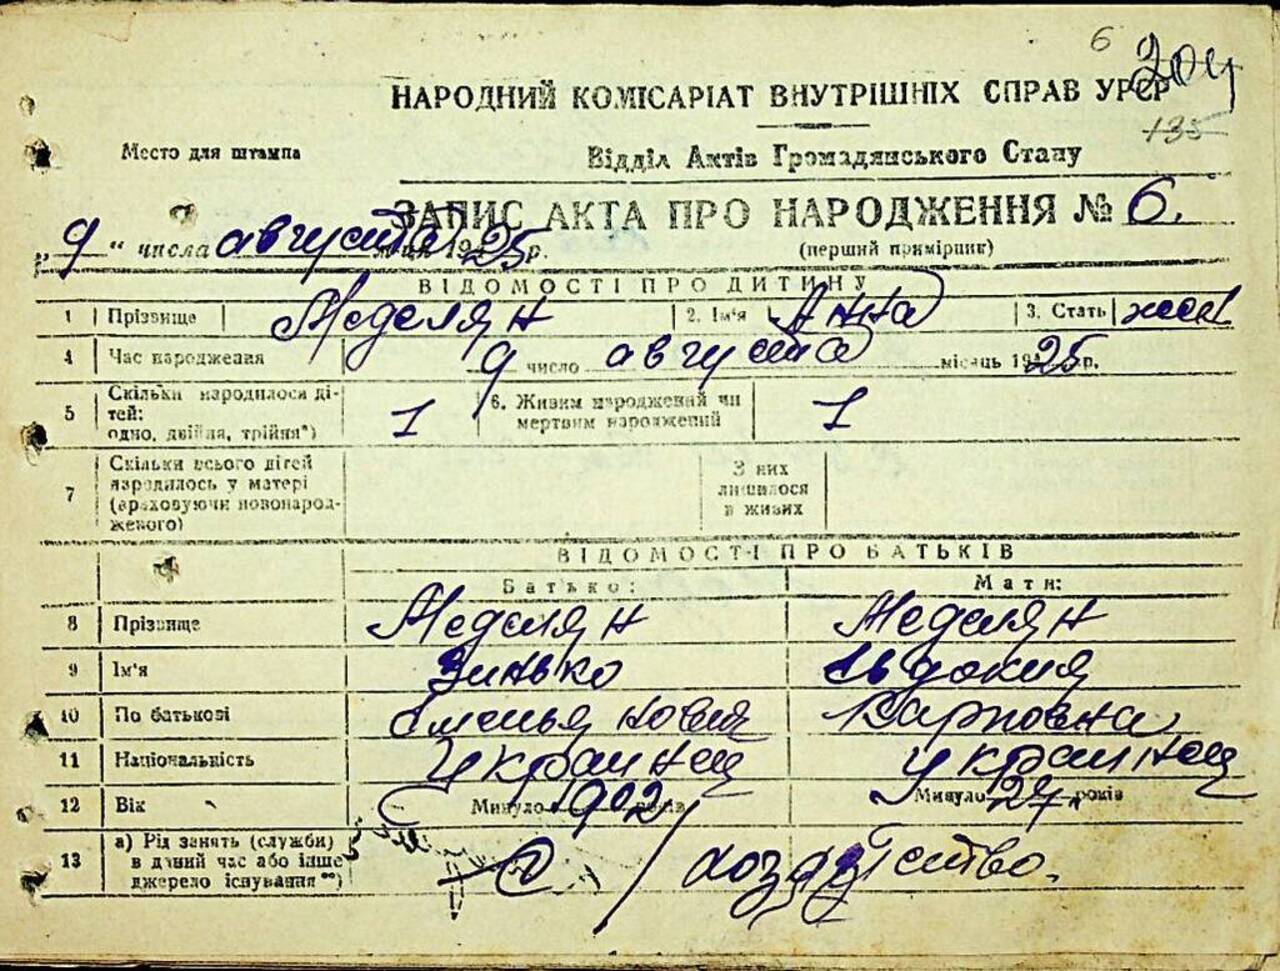 6 204
НАРОДНИЙ КОМІСАРІАТ ВНУТРІШНІХ СПРАВ УРСР
135
Место для штампа
Відділ Актів Громадянського Стану
ЗАПИС АКТА ПРО НАРОДЖЕННЯ № 6.
„9" числа августа м-ця 1925 р.
(перший примірник)
ВІДОМОСТІ ПРО ДИТИНУ
1 Прізвище Меделян 2. Ім'я Анна 3. Стать жен
4 Час народження 9 число августа місяць 1925 р.
5 Скільки народилося ді-
тей:
одно, двійня, трійня*) 1 6. Живим народжений чи
мертвим народжений 1
7 Скільки всього дітей
народилось у матері
(враховуючи новонарод-
женого)
З них
лишилося
в живих
ВІДОМОСТІ ПРО БАТЬКІВ
Батько: Мати:
8 Прізвище Меделян Меделян
9 Ім'я Зинько Евдокия
10 По батькові Емельянович Карповна
11 Національність Украинец Украинец
12 Вік Минуло 1902 років Минуло 27. років
13 а) Рід занять (служби)
в даний час або інше
джерело існування**) хозяйство.